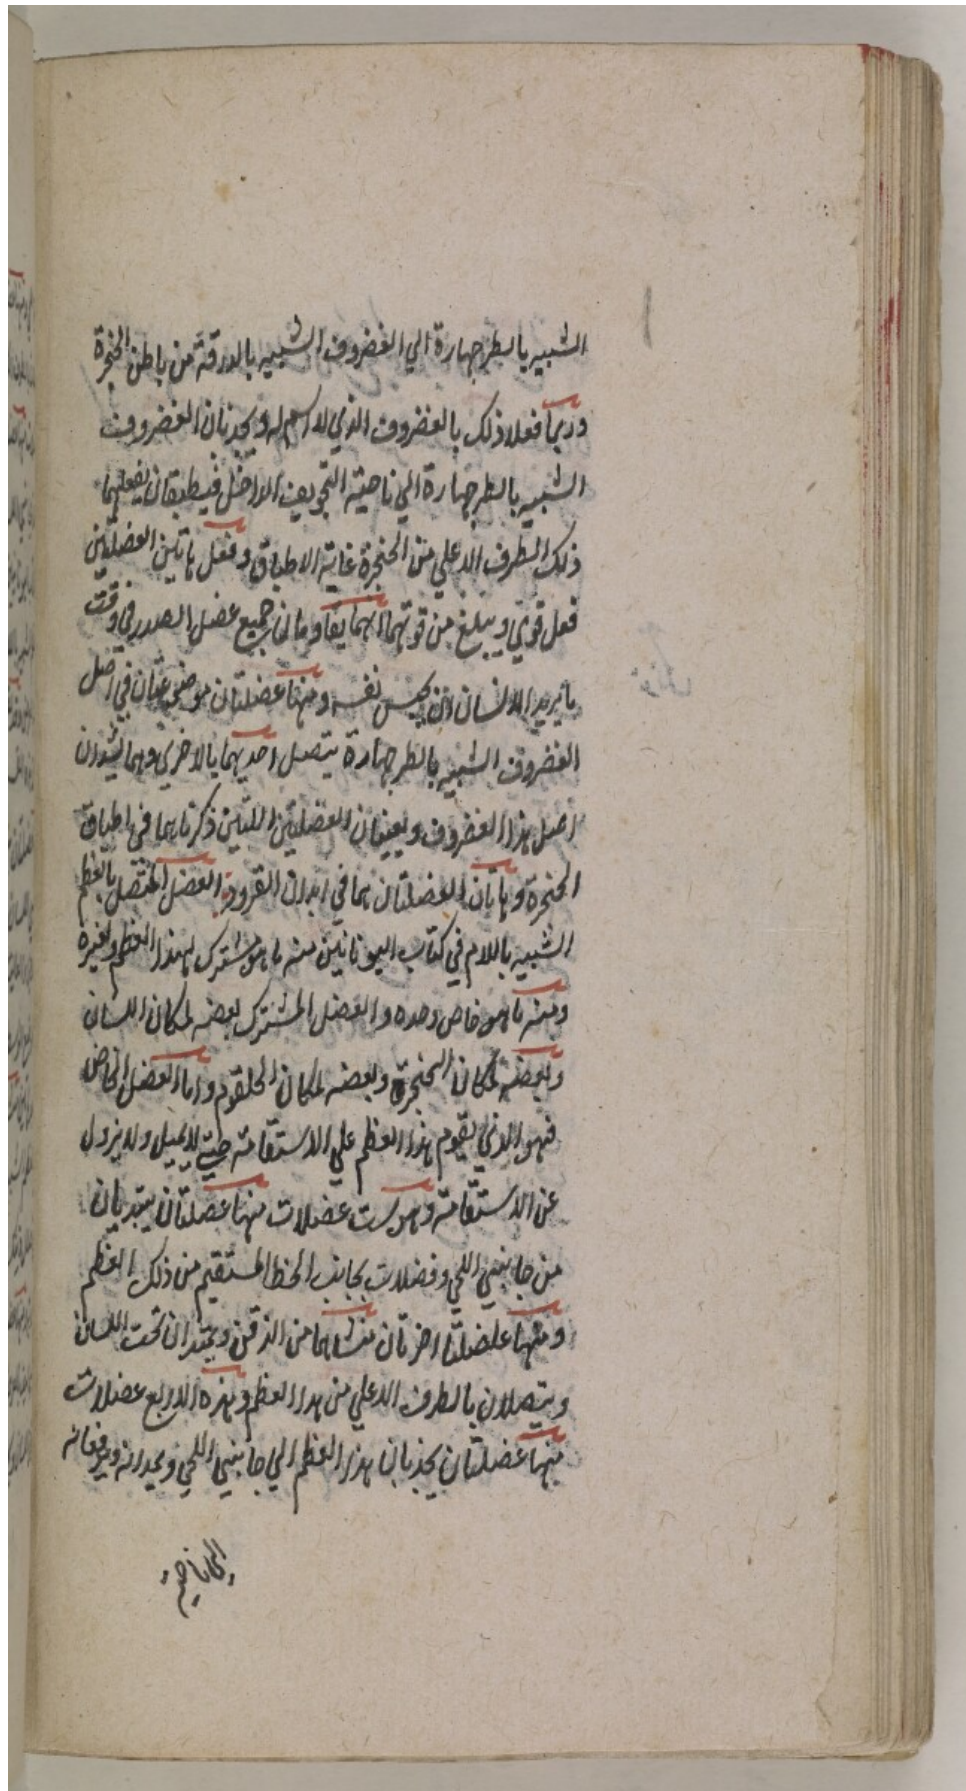 الشبيه بالطرجهارة الي الغضروف الشبيه بالدرقة من باطن الحنجرة
وربما فعلا ذلك بالغضروف الذي لا اسم له ويجذبان الغضروف
الشبيه بالطرجهارة الي ناحية التجويف الداخل فيطبقان بفعلهما
ذلك الطرف الاعلي من الحنجرة غاية الاطباق وفعل هاتين العضلتين
فعل قوي ويبلغ من قوتهما انهما يقاومان جميع عضل الصدر في وقت
ما يريد الانسان ان يحبس نفسه ومنها عضلتان موضوعتان في اصل
الغضروف الشبيه بالطرجهارة يتصل احديهما بالاخري وهما يشدان
اصل هذا الغضروف ويعينان العضلتين اللتين ذكرناهما في اطباق
الحنجرة وهاتان العضلتان هما في ابدان القرود العضل المتصل بالعظم
الشبيه باللام في كتاب اليونانيين منه ما هو مشترك لهذا العظم ولغيره
ومنه ما هو خاص وحده والعضل المشترك بعضه لمكان اللسان
وبعضه لمكان الحنجرة وبعضه لمكان الحلقوم واما العضل الخاص
فهو الذي يقوم هذا العظم علي الاستقامة حتي لا يميل ولا يزول
عن الاستقامة وهو ست عضلات منها عضلتان يبتديان
من جانبي اللحي وفضلات بجانب الخط المستقيم من ذلك العظم
ومنها عضلتا اخرتان منشاهما من الذقن ويمتدان تحت اللسان
ويتصلان بالطرف الاعلي من هدا العظم وهذه الاربع عضلات
منها عضلتان يجذبان هذا العظم الي جانبي اللحي ويمدانه ويرفعانه